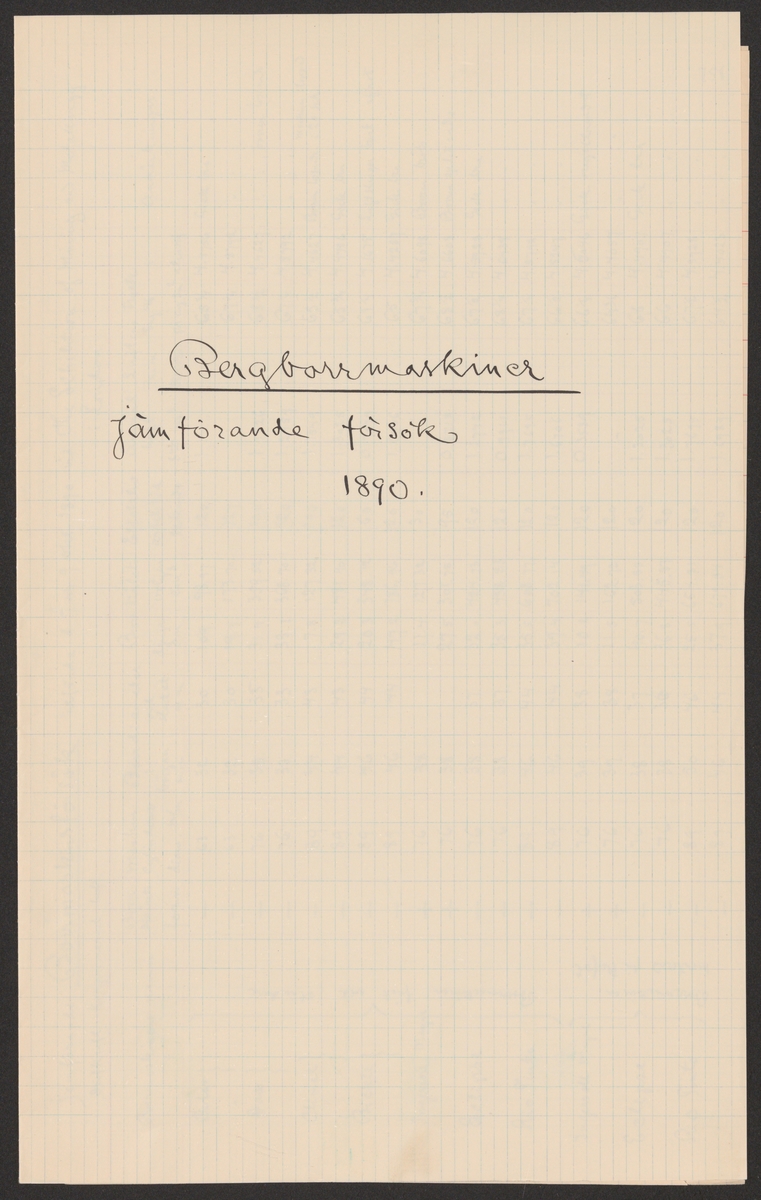 Bergborrmaskiner
jämförande försök
1890.